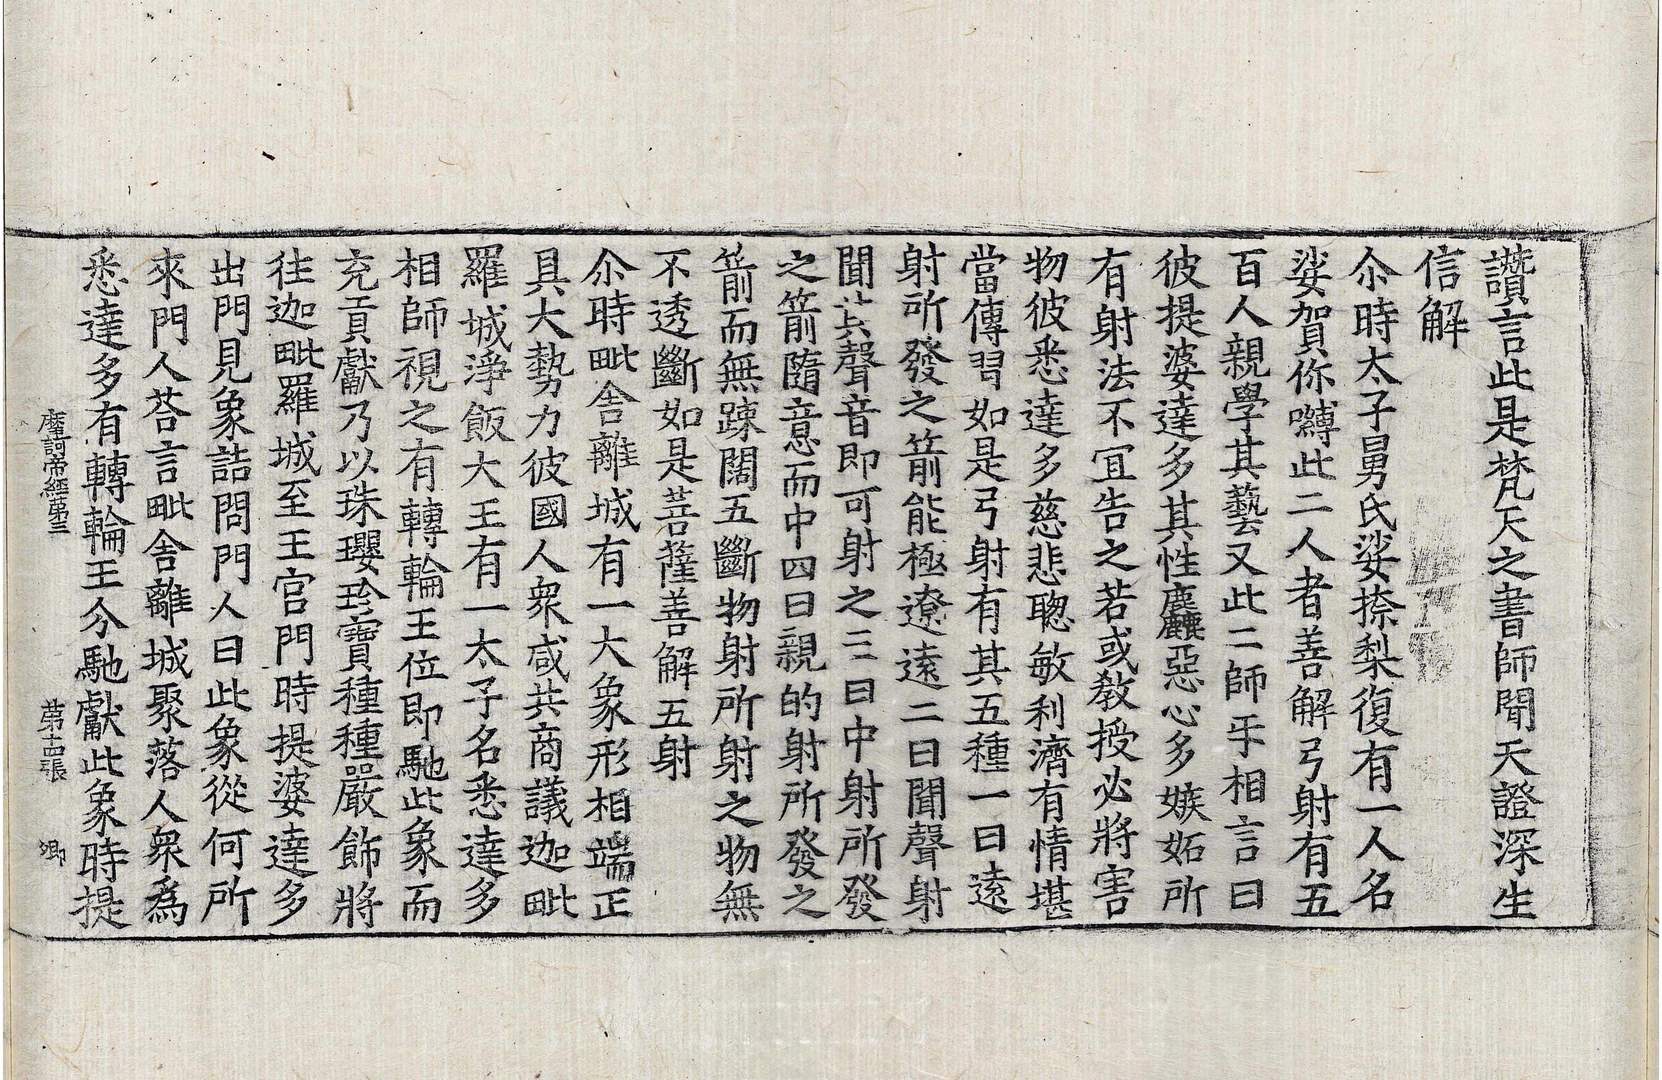 讚言此是梵天之書師聞天證深生
信解
尒時太子舅氏娑捺梨復有一人名
娑賀你嚩此二人者善解弓射有五
百人親學其藝又此二師乎相言曰
彼提婆達多其性麤惡心多嫉妬所
有射法不宜告之若或教授必將害
物彼悉達多慈悲聰敏利濟有情堪
當傳習如是弓射有其五種一曰遠
射所發之箭能極遼遠二曰聞聲射
聞其聲音即可射之三曰中射所發
之箭隨意而中四曰親的射所發之
箭而無踈闊五斷物射所射之物無
不透斷如是菩薩善解五射
尒時毗舍離城有一大象形相端正
具大勢力彼國人衆咸共商議迦毗
羅城淨飯大王有一太子名悉達多
相師視之有轉輪王位即馳此象而
充貢獻乃以珠瓔珍寶種種嚴飾將
往迦毗羅城至王宮門時提婆達多
出門見象詰問門人曰此象從何所
來門人荅言毗舍離城聚落人衆為
悉達多有轉輪王分馳獻此象時提
摩訶帝經第三 第十四張 卿